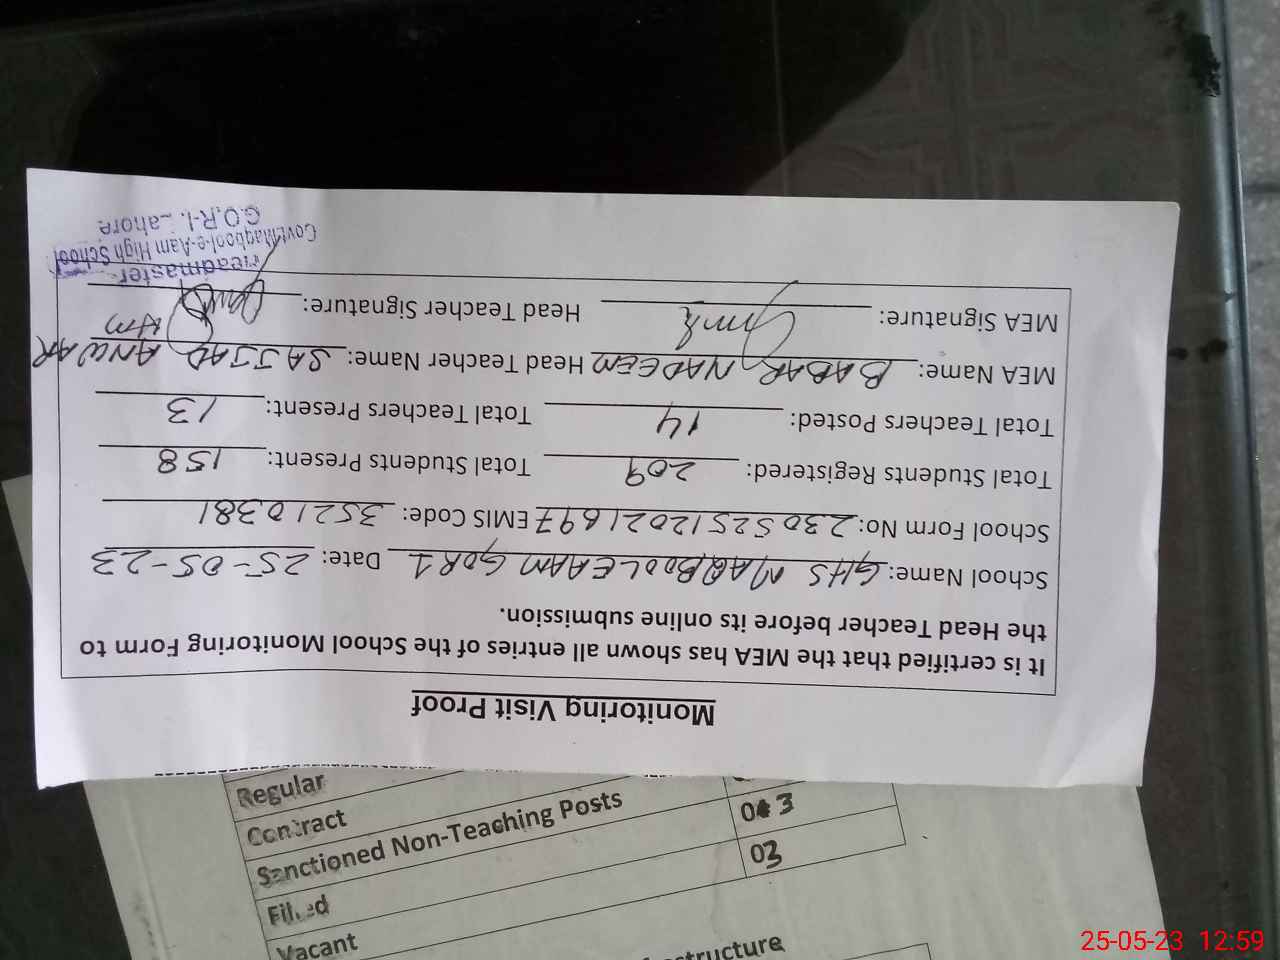 Monitoring Visit Proof
It is certified that the MEA has shown all entries of the School Monitoring Form to
the Head Teacher before its online submission.
School Name: GHS MAQBOOLEAAM GOR1 Date: 25-05-23
School Form No: 23052512021697 EMIS Code: 35210381
Total Students Registered: 209 Total Students Present: 158
Total Teachers Posted: 14 Total Teachers Present: 13
MEA Name: BABAR NADEEM Head Teacher Name: SAJJAD ANWAR
HM
MEA Signature: Head Teacher Signature:
Headmaster
Govt.Maqbool-e-Aam High School
G.O.R-I. Lahore.
Regular
Contract
Sanctioned Non-Teaching Posts 03
Filled 03
Vacant
structure
25-05-23 12:59